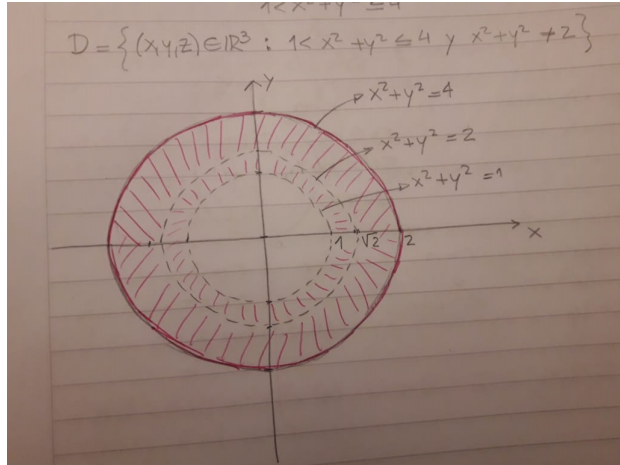 1 < x² + y² ≤ 4
D = {(x,y,z) ∈ ℝ³ : 1 < x² + y² ≤ 4 y x² + y² ≠ 2}
y
x² + y² = 4
x² + y² = 2
x² + y² = 1
1 √2 2 x